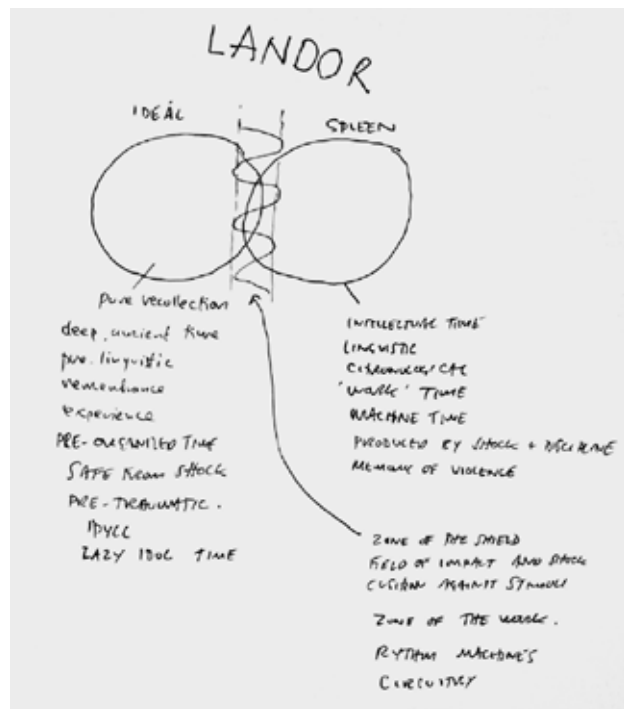 LANDOR
IDEÁL
SPLEEN
pure recollection
deep, ancient time
pre-linguistic
remembrance
experience
PRE-ORGANISED TIME
SAFE FROM SHOCK
PRE-TRAUMATIC.
IDYLL
LAZY IDOL TIME
INTELLECTUAL TIME
LINGUISTIC
CHRONOLOGICAL
'WORK' TIME
MACHINE TIME
PRODUCED BY SHOCK + DISCIPLINE
MEMORY OF VIOLENCE
ZONE OF THE SHIELD
FIELD OF IMPACT AND SHOCK
CUSHION AGAINST STIMULI
ZONE OF THE WORK.
RYTHM MACHINES
CIRCUITRY